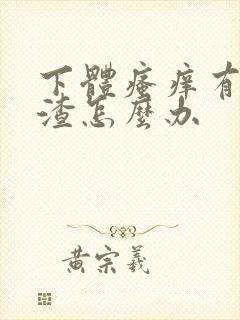 下體瘙痒有
渣怎麼办
黄宗羲